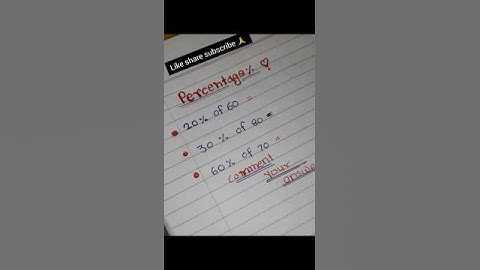 Like share subscribe 🙏
Percentage%
20% of 60 =
30% of 80 =
60% of 70 =
comment
your
answer